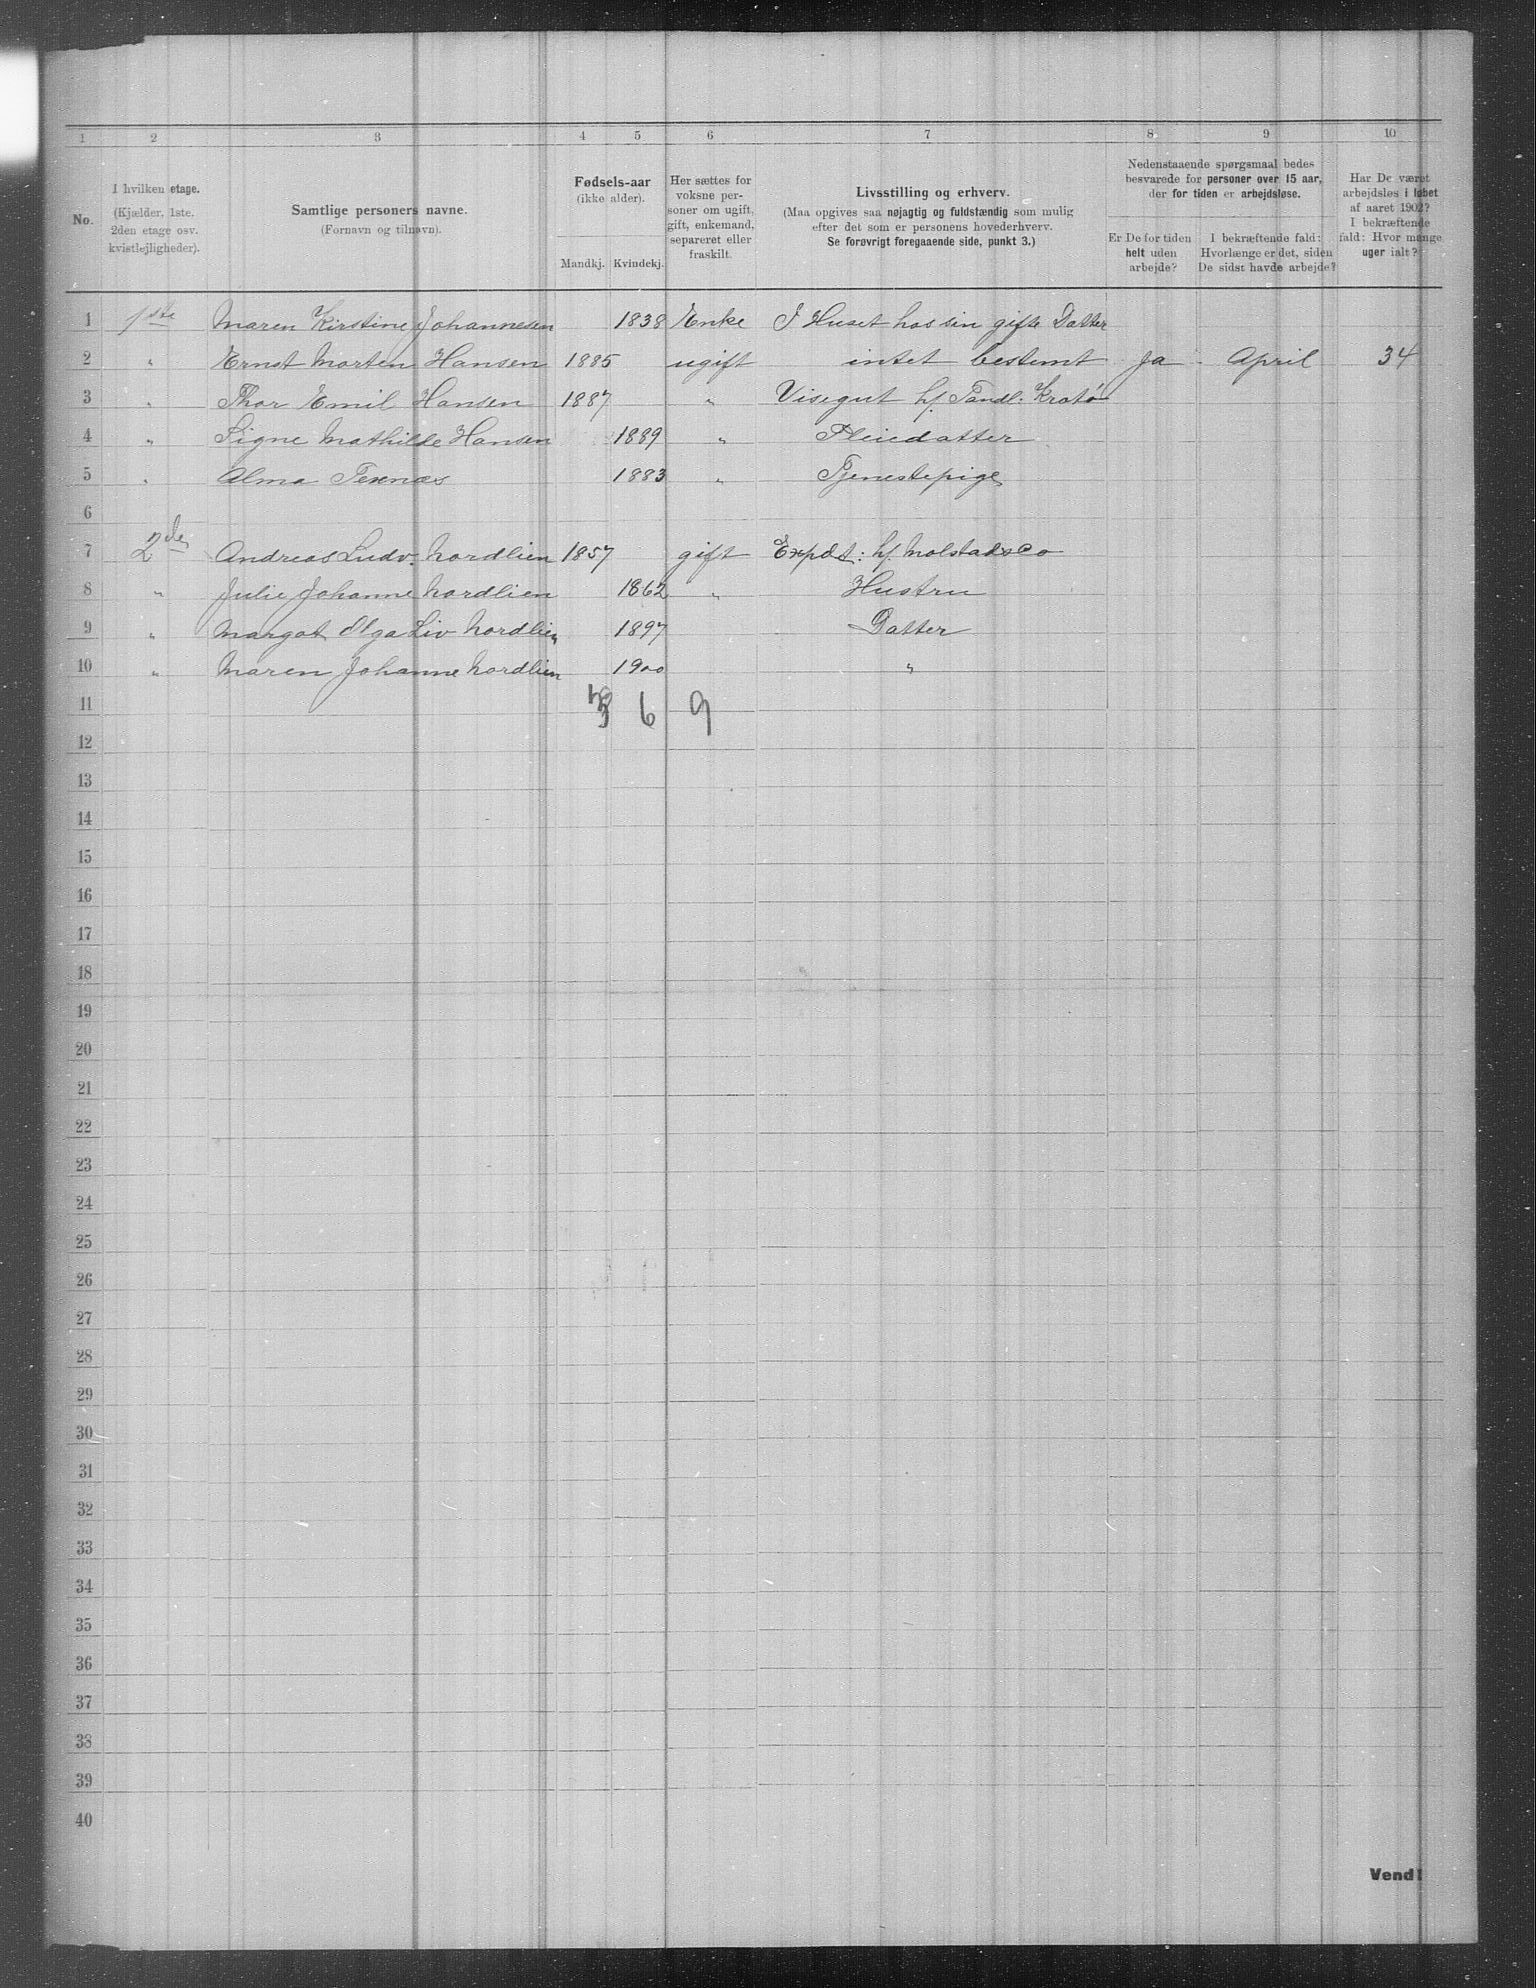 1 2 3 4 5 6 7 8 9 10
No.
I hvilken etage.
(Kjælder, 1ste.
2den etage osv.
kvistlejligheder).
Samtlige personers navne.
(Fornavn og tilnavn).
Fødsels-aar
(ikke alder).
Mandkj. Kvindekj.
Her sættes for
voksne per-
soner om ugift,
gift, enkemand,
separeret eller
fraskilt.
Livsstilling og erhverv.
(Maa opgives saa nøjagtig og fuldstændig som mulig
efter det som er personens hovederhverv.
Se forøvrigt foregaaende side, punkt 3.)
Nedenstaaende spørgsmaal bedes
besvarede for personer over 15 aar,
der for tiden er arbejdsløse.
Er De for tiden
helt uden
arbejde?
I bekræftende fald:
Hvorlænge er det, siden
De sidst havde arbejde?
Har De været
arbejdsløs i løbet
af aaret 1902?
I bekræftende
fald: Hvor mange
uger ialt?
1 1ste Maren Kirstine Johannesen 1838 Enke I Huset hos sin gifte Datter
2 " Ernst Morten Hansen 1885 ugift intet bestemt Ja April 34
3 " Thor Emil Hansen 1887 " Visegut hf Tandl: Kratø
4 " Signe Mathilde Hansen 1889 " Pleiedatter
5 " Alma 1883 " Tjenestepige
6
7 2den Andreas Ludv. Nordlien 1857 gift Expdt: hf Molstad & Co
8 " Julie Johanne Nordlien 1862 " Hustru
9 " Margot Olga Liv Nordlien 1897 Datter
10 " Maren Johanne Nordlien 1900 "
11 3 6 9
12
13
14
15
16
17
18
19
20
21
22
23
24
25
26
27
28
29
30
31
32
33
34
35
36
37
38
39
40
Vend!